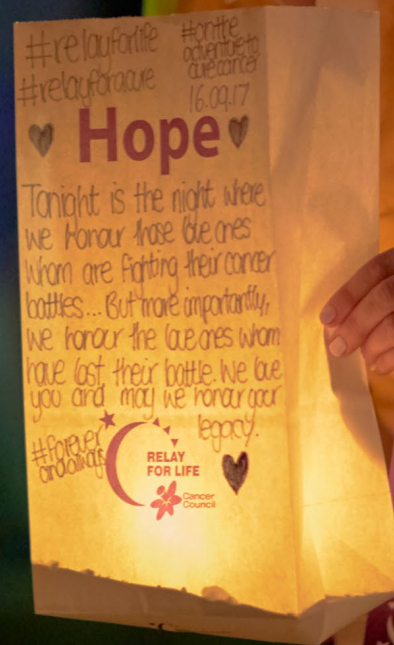 #relayforlife
#relayforacure
#onthe
adventureto
curecancer
16.09.17
Hope
Tonight is the night where
we honour those love ones
whom are fighting their cancer
battles... But more importantly,
we honour the love ones whom
have lost their battle. We love
you and may we honour your
legacy.
#forever
andalways
RELAY
FOR LIFE
Cancer
Council